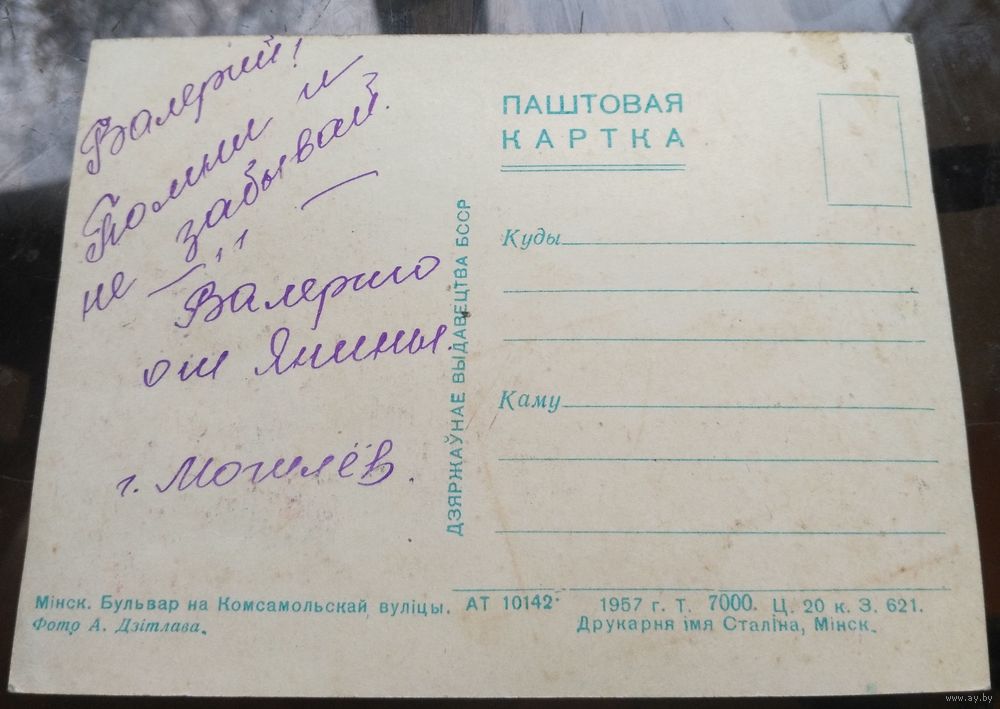 Валерий!
Помни и
не забывай.
Валерию
от Янины.
г. Могилёв.
ПАШТОВАЯ
КАРТКА
Куды
Каму
ДЗЯРЖАЎНАЕ ВЫДАВЕЦТВА БССР
Мінск. Бульвар на Комсамольскай вуліцы.
Фото А. Дзітлава.
АТ 10142 1957 г. Т. 7000. Ц. 20 к. З. 621.
Друкарня імя Сталіна, Мінск.
www.ay.by